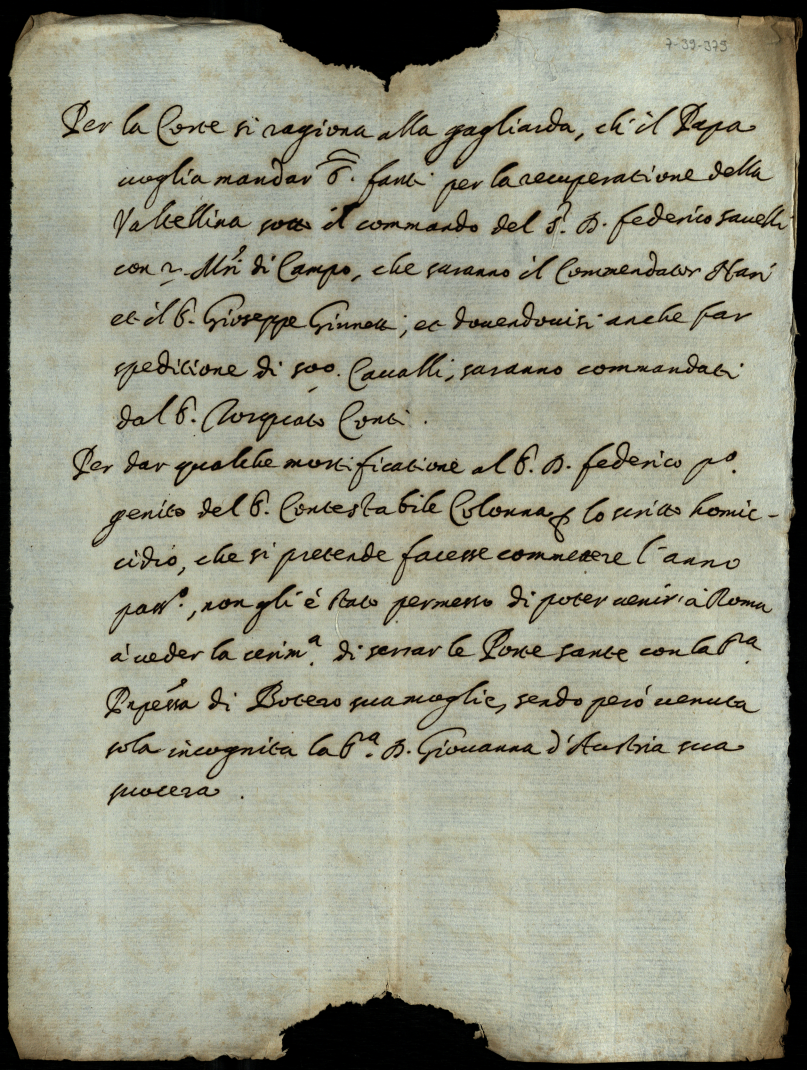 7-39-375
Per la Corte si ragiona alla gagliarda, ch'il Papa
voglia mandar 6. fanti per la recuperatione della
Valtellina sotto il commando del S.r D. federico savelli
con 2. Mri di Campo, che saranno il Commendator Nari
et il S. Gioseppe Ginnetti, et dovendovisi anche far
speditione di 500. Cavalli, saranno commandati
dal S. Torquato Conti.
Per dar qualche mortificatione al S. D. federico po.
genito del S. Contestabile Colonna lo scritto homic-
cidio, che si pretende facesse commettere l'anno
pass.o, non gli é stato permesso di poter venir' à Roma
à veder la cerim.a di serrar le Porte sante con la S.ra
Pnpessa di Botero sua moglie, sendo però venuta
sola incognita la S.ra D. Giovanna d'Austria sua
suocera.